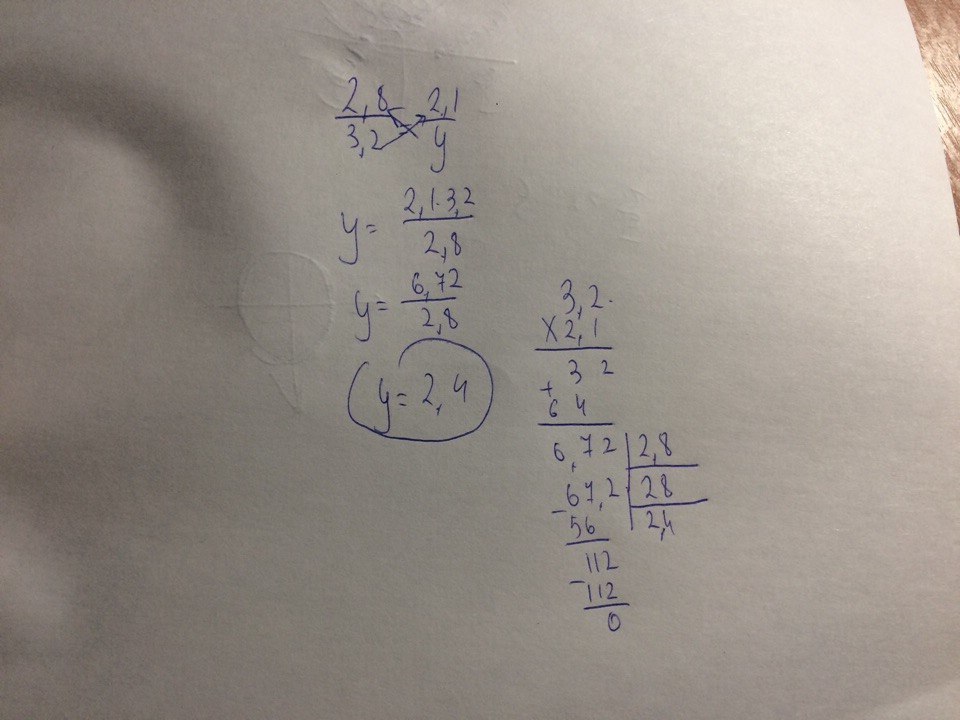 2,8 = 2,1
3,2 y
y = 2,1·3,2
2,8
y = 6,72
2,8
y = 2,4
3,2
× 2,1
3 2
+
6 4
6,72 | 2,8
- 67,2 | 28
56 | 2,4
112
- 112
0